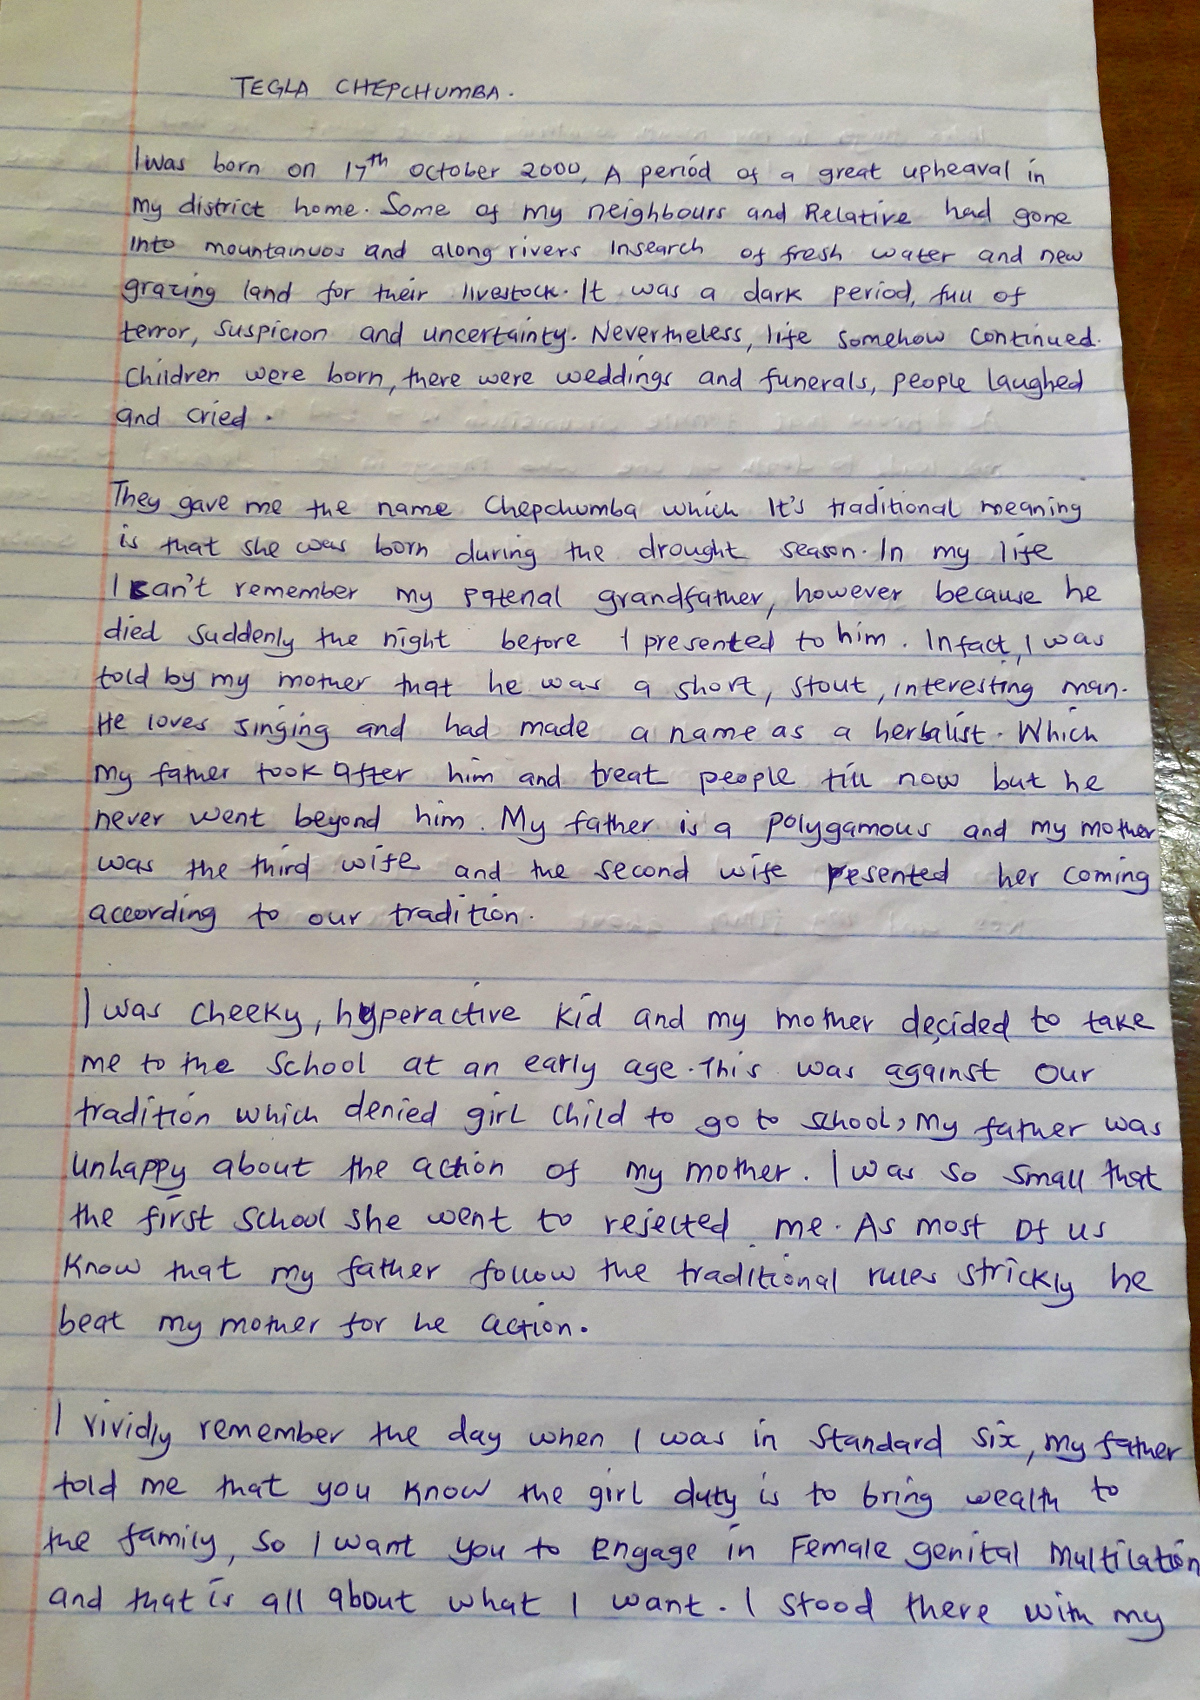 TEGLA CHEPCHUMBA.
I was born on 17th October 2000, A period of a great upheaval in
my district home. Some of my neighbours and Relative had gone
into mountainuos and along rivers insearch of fresh water and new
grazing land for their livestock. It was a dark period, full of
terror, suspicion and uncertainty. Nevertheless, life somehow continued.
Children were born, there were weddings and funerals, people laughed
and cried.
They gave me the name Chepchumba which It's traditional meaning
is that she was born during the drought season. In my life
I can't remember my patenal grandfather, however because he
died suddenly the night before I presented to him. Infact, I was
told by my mother that he was a short, stout, interesting man.
He loves singing and had made a name as a herbalist. Which
my father took after him and treat people till now but he
never went beyond him. My father is a polygamous and my mother
was the third wife and the second wife resented her coming
according to our tradition.
I was cheeky, hyperactive kid and my mother decided to take
me to the school at an early age. This was against our
tradition which denied girl child to go to school, my father was
unhappy about the action of my mother. I was so small that
the first school she went to rejected me. As most of us
know that my father follow the traditional rules strickly he
beat my mother for he action.
I vividly remember the day when I was in standard six, my father
told me that you know the girl duty is to bring wealth to
the family, so I want you to engage in Female genital multilation
and that is all about what I want. I stood there with my